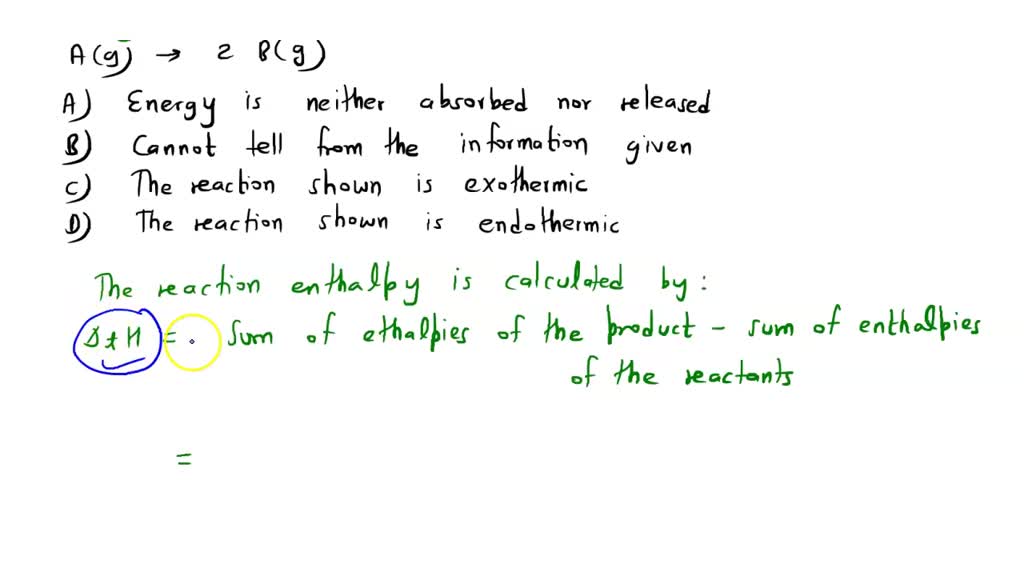 A(g) → 2 B(g)
A) Energy is neither absorbed nor released
B) Cannot tell from the information given
C) The reaction shown is exothermic
D) The reaction shown is endothermic
The reaction enthalpy is calculated by :
Δ_t H = . Sum of ethalpies of the product - sum of enthalpies
of the reactants
=